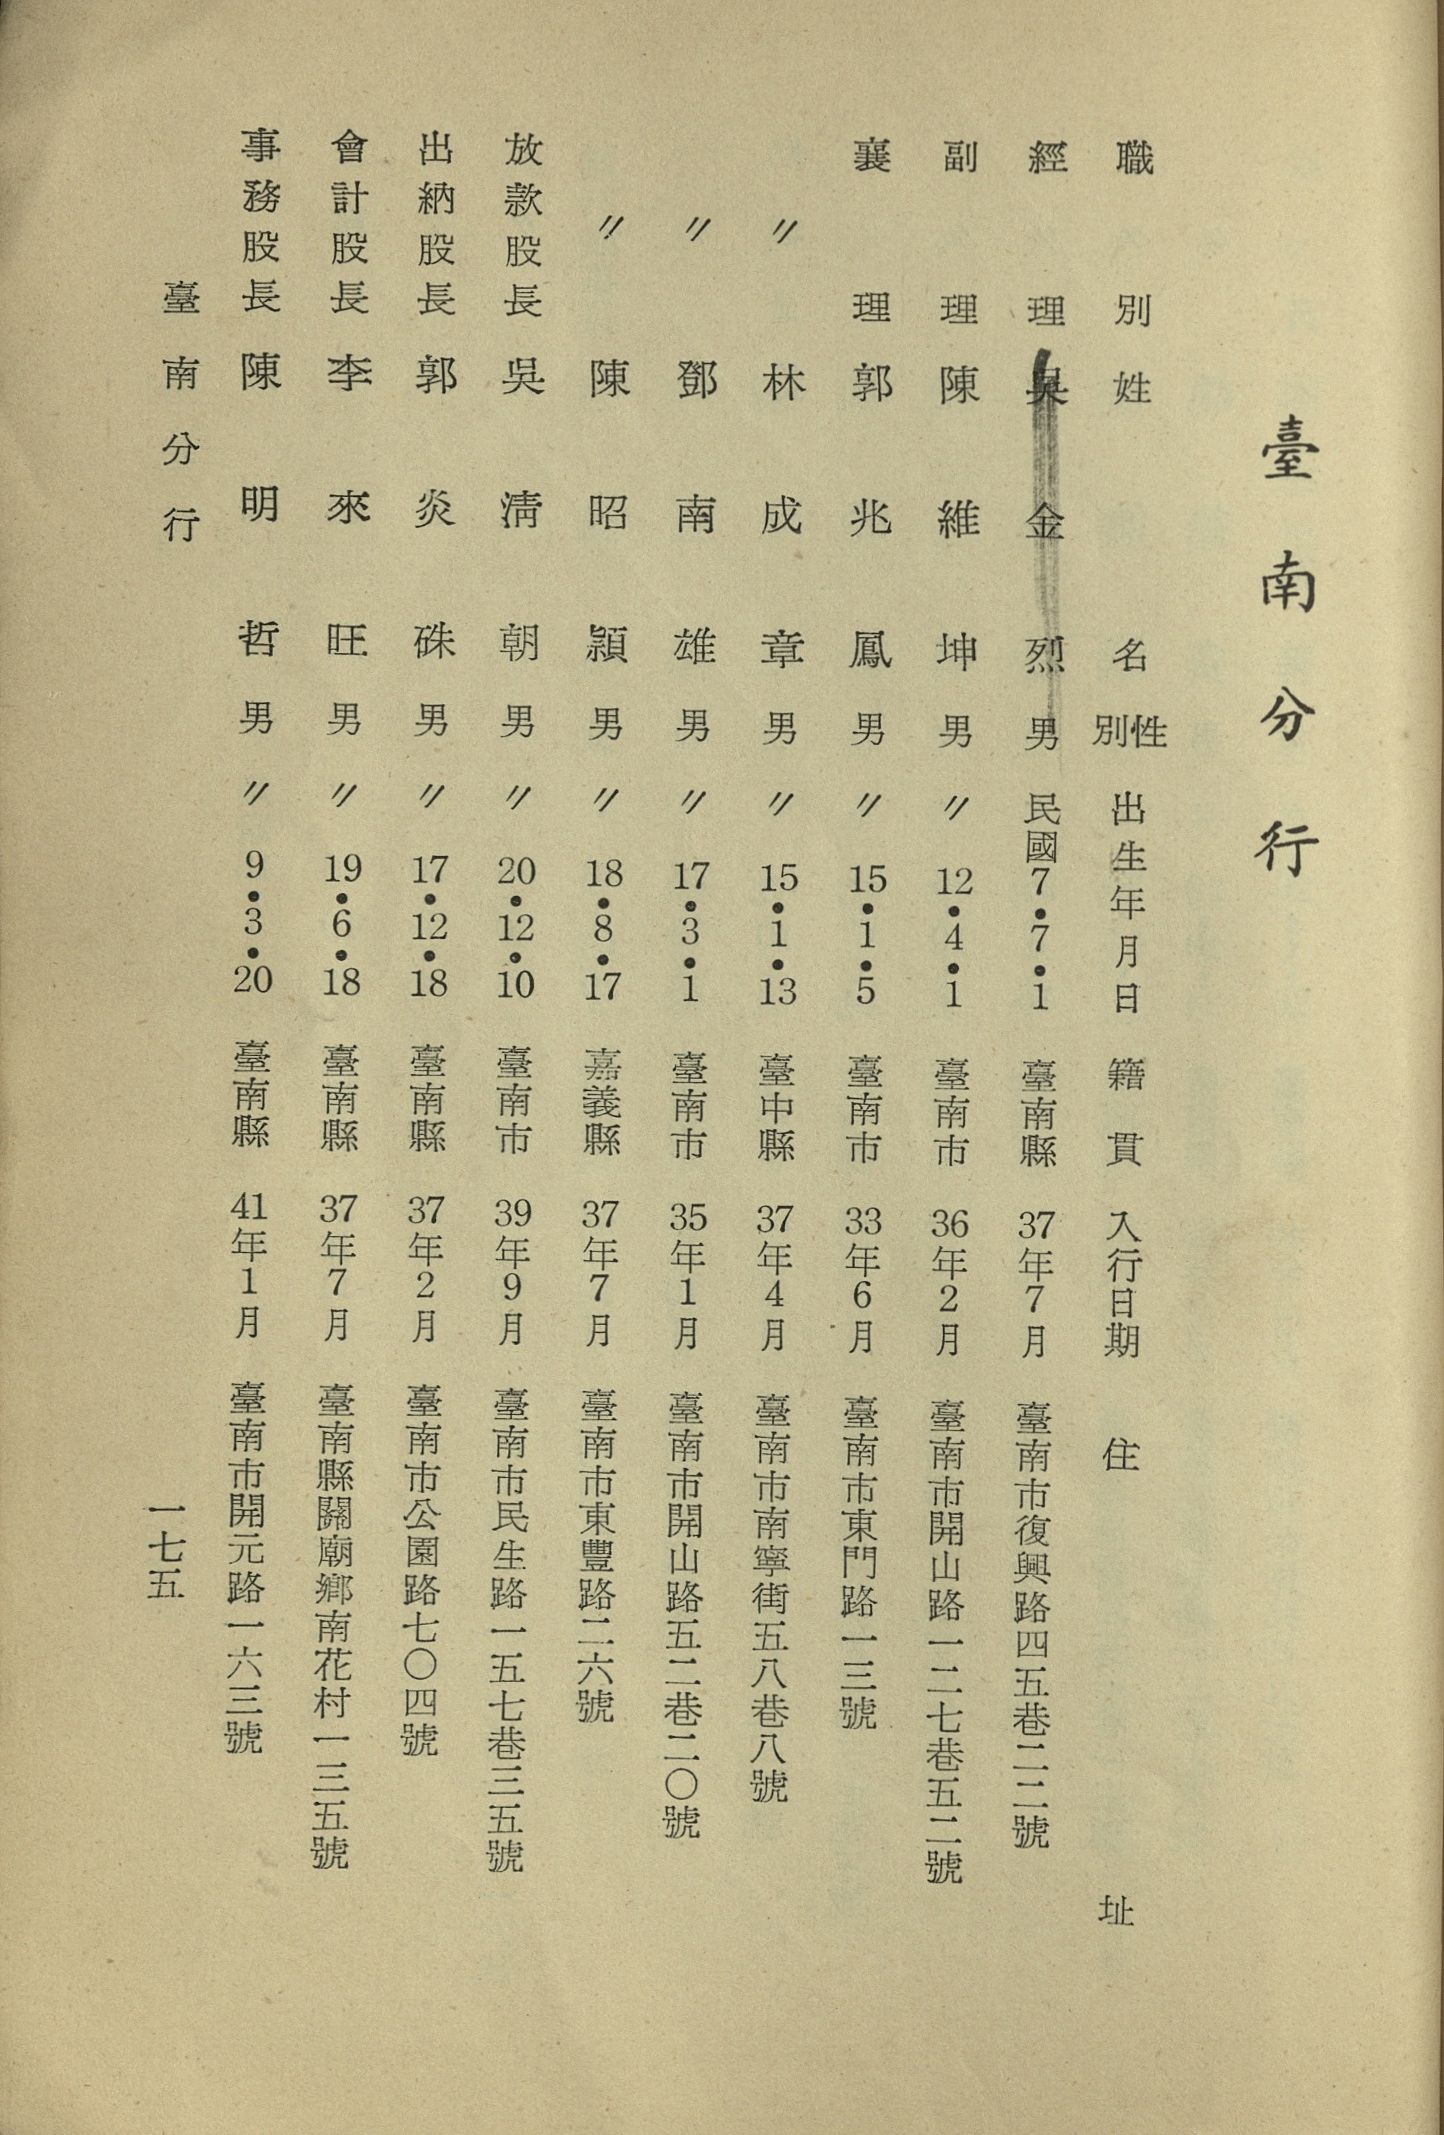 臺南分行
職別 姓名 性別 出生年月日 籍貫 入行日期 住址
經理 吳金烈 男 民國7•7•1 臺南縣 37年7月 臺南市復興路四五巷二二號
副理 陳維坤 男 〃 12•4•1 臺南市 36年2月 臺南市開山路一二七巷五二號
襄理 郭兆鳳 男 〃 15•1•5 臺南市 33年6月 臺南市東門路一三號
〃 林成章 男 〃 15•1•13 臺中縣 37年4月 臺南市南寧街五八巷八號
〃 鄧南雄 男 〃 17•3•1 臺南市 35年1月 臺南市開山路五二巷二〇號
〃 陳昭顯 男 〃 18•8•17 嘉義縣 37年7月 臺南市東豐路二六號
放款股長 吳淸朝 男 〃 20•12•10 臺南市 39年9月 臺南市民生路一五七巷三五號
出納股長 郭炎硃 男 〃 17•12•18 臺南縣 37年2月 臺南市公園路七〇四號
會計股長 李來旺 男 〃 19•6•18 臺南縣 37年7月 臺南縣關廟鄉南花村一三五號
事務股長 陳明哲 男 〃 9•3•20 臺南縣 41年1月 臺南市開元路一六三號
臺南分行
一七五